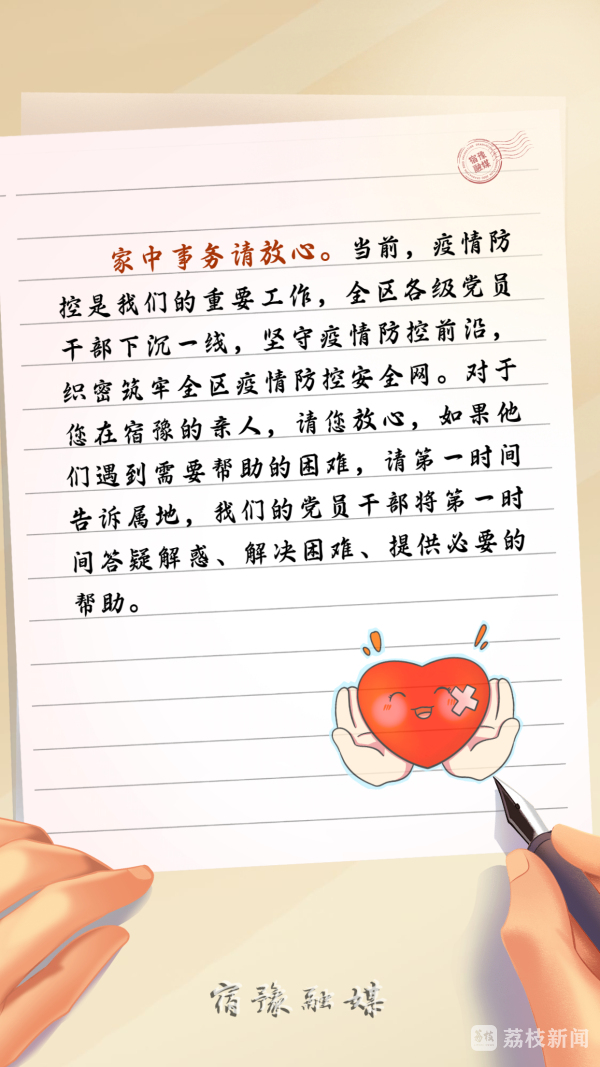 宿豫
融媒
家中事务请放心。当前，疫情防
控是我们的重要工作，全区各级党员
干部下沉一线，坚守疫情防控前沿，
织密筑牢全区疫情防控安全网。对于
您在宿豫的亲人，请您放心，如果他
们遇到需要帮助的困难，请第一时间
告诉属地，我们的党员干部将第一时
间答疑解惑、解决困难、提供必要的
帮助。
宿豫融媒
荔枝 荔枝新闻